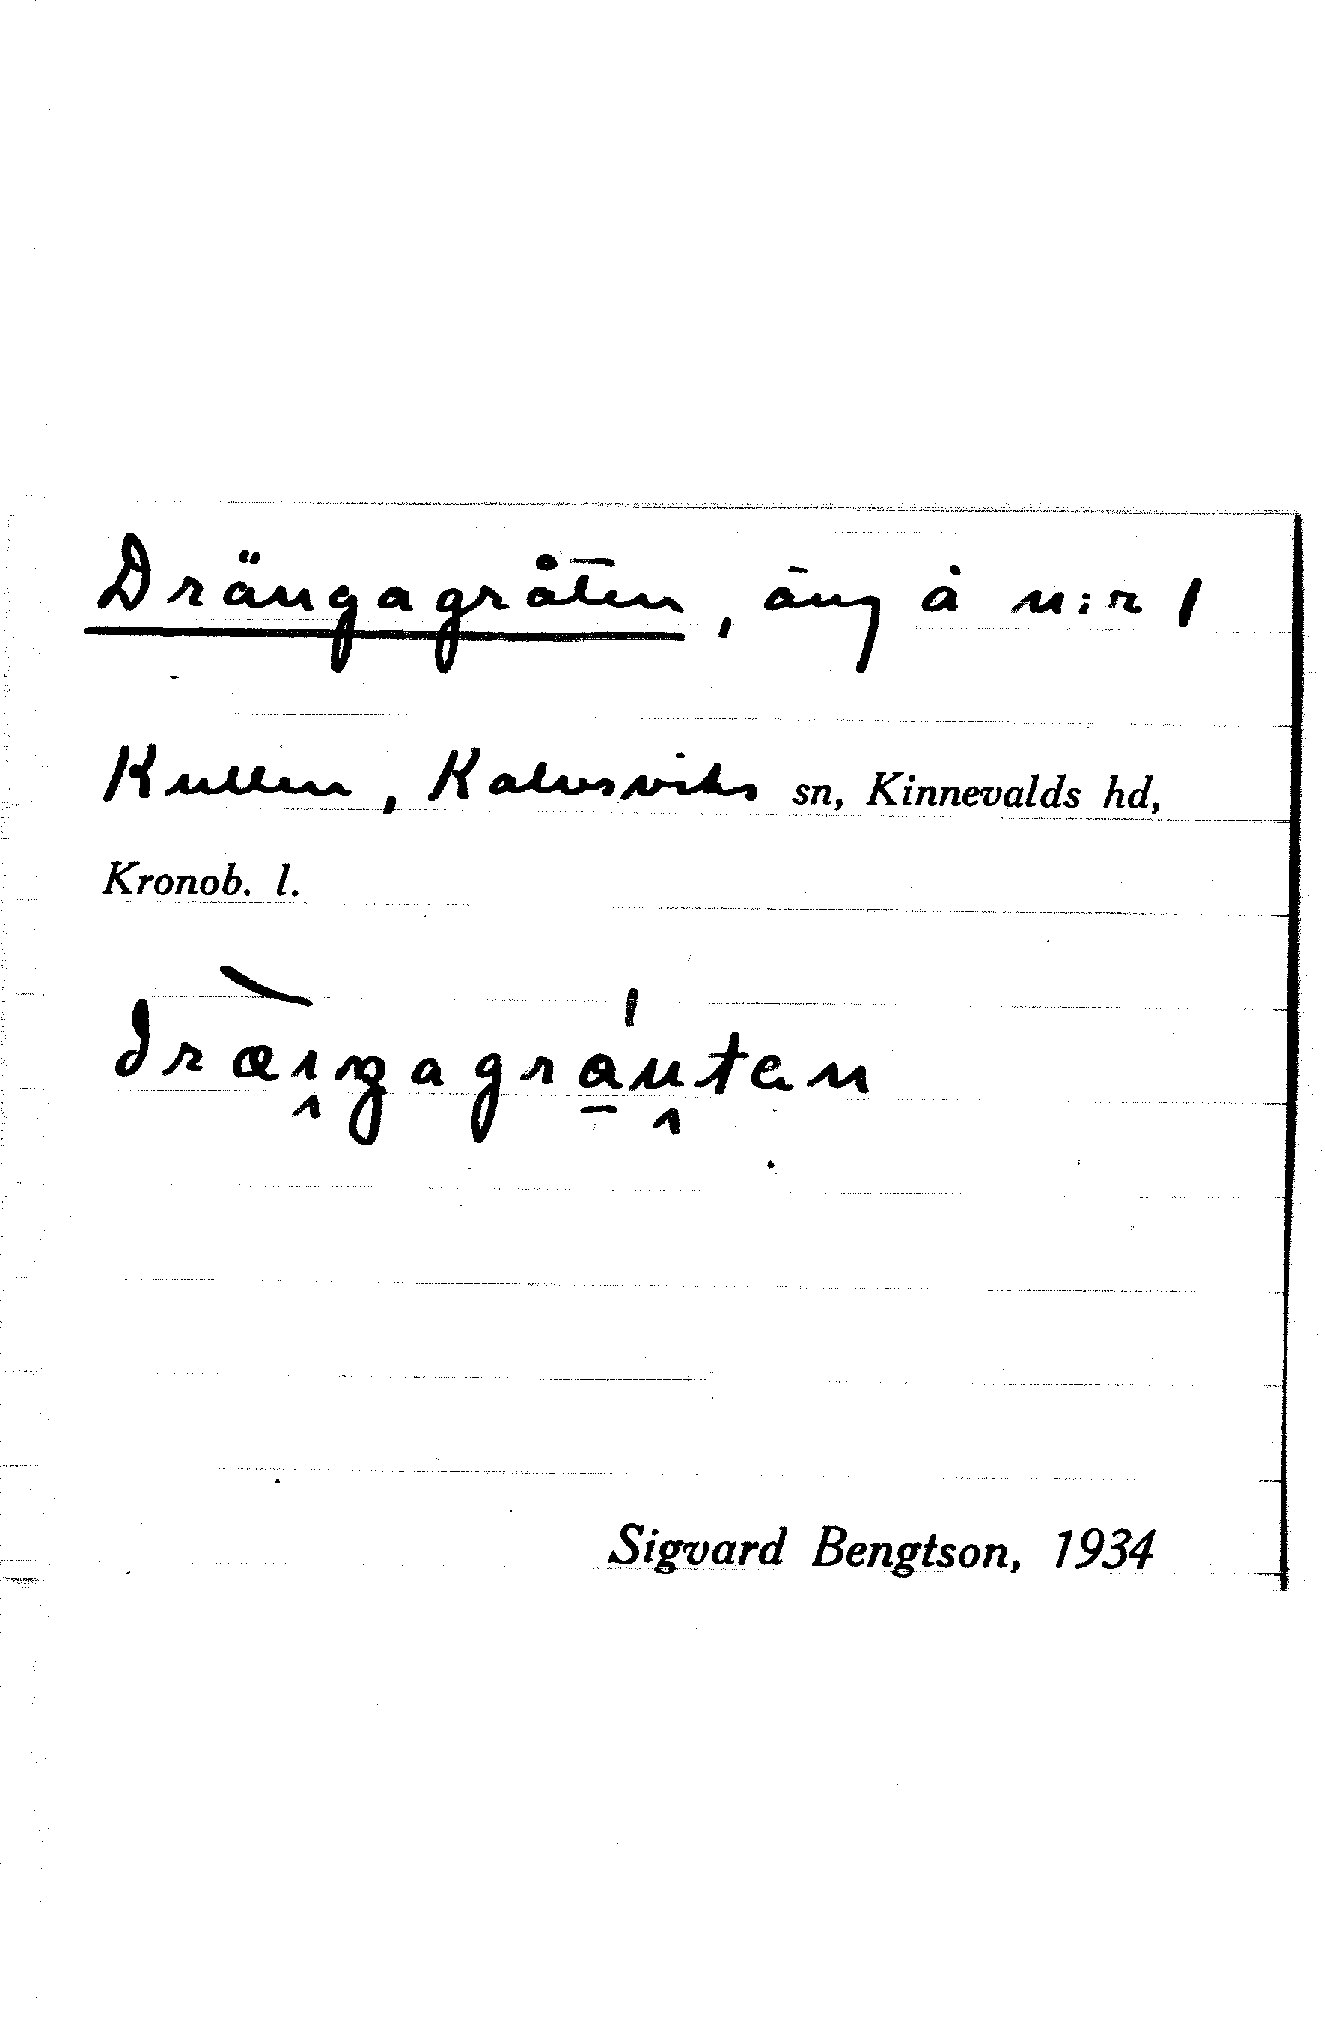 Drängagråten, äng å n:r 1
Kullen, Kalvsviks sn, Kinnevalds hd,
Kronob. l.
dræ̀ı̯ŋagrá̱u̯tan
Sigvard Bengtson, 1934